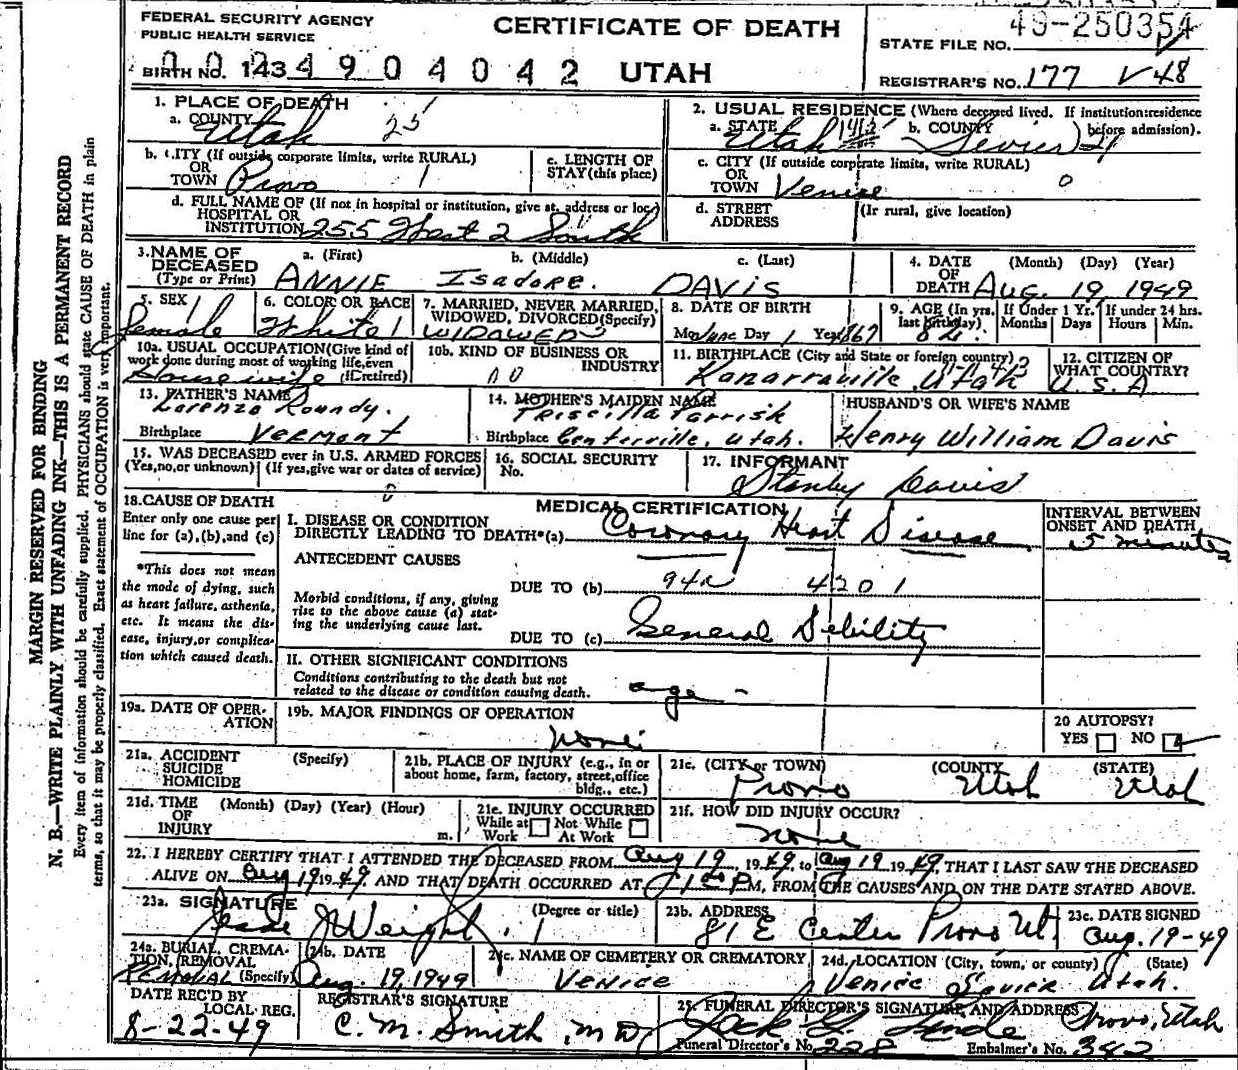 FEDERAL SECURITY AGENCY
PUBLIC HEALTH SERVICE
CERTIFICATE OF DEATH
49-250354
STATE FILE NO.
BIRTH NO. 143 4 9 0 4 0 4 2 UTAH
REGISTRAR'S NO. 177 V48
1. PLACE OF DEATH
a. COUNTY Utah 25
2. USUAL RESIDENCE (Where deceased lived. If institution:residence before admission).
a. STATE Utah b. COUNTY Sevier 21
b. CITY (If outside corporate limits, write RURAL)
OR
TOWN Provo 1
c. LENGTH OF
STAY (this place)
c. CITY (If outside corporate limits, write RURAL)
OR
TOWN Venice 0
d. FULL NAME OF (If not in hospital or institution, give st. address or loc.)
HOSPITAL OR
INSTITUTION 255 West 2 South
d. STREET
ADDRESS
(If rural, give location)
3. NAME OF
DECEASED
(Type or Print)
a. (First) b. (Middle) c. (Last)
ANNIE Isadore. DAVIS
4. DATE
OF
DEATH
(Month) (Day) (Year)
Aug. 19, 1949
5. SEX
female
6. COLOR OR RACE
White 1
7. MARRIED, NEVER MARRIED,
WIDOWED, DIVORCED(Specify)
WIDOWED
8. DATE OF BIRTH
Mo. June Day 1 Year 1867
9. AGE (In yrs.
last birthday)
82
If Under 1 Yr.
Months Days
If under 24 hrs.
Hours Min.
10a. USUAL OCCUPATION(Give kind of
work done during most of working life, even
if retired)
Housewife
10b. KIND OF BUSINESS OR
INDUSTRY
11. BIRTHPLACE (City and State or foreign country)
Kanarraville, Utah
12. CITIZEN OF
WHAT COUNTRY?
U.S.A
13. FATHER'S NAME
Lorenzo Roundy.
Birthplace Vermont
14. MOTHER'S MAIDEN NAME
Priscilla Parrish
Birthplace Centerville, Utah.
HUSBAND'S OR WIFE'S NAME
Henry William Davis
15. WAS DECEASED ever in U.S. ARMED FORCES
(Yes,no,or unknown) (If yes,give war or dates of service)
0
16. SOCIAL SECURITY
No.
17. INFORMANT
Stanley Davis
18. CAUSE OF DEATH
Enter only one cause per
line for (a),(b),and (c)
*This does not mean
the mode of dying, such
as heart failure, asthenia,
etc. It means the dis-
ease, injury,or complica-
tion which caused death.
MEDICAL CERTIFICATION
I. DISEASE OR CONDITION
DIRECTLY LEADING TO DEATH*(a) Coronary Heart Disease
INTERVAL BETWEEN
ONSET AND DEATH
5 minutes
ANTECEDENT CAUSES
Morbid conditions, if any, giving
rise to the above cause (a) stat-
ing the underlying cause last.
DUE TO (b) 94a 4201
DUE TO (c) General Debility
II. OTHER SIGNIFICANT CONDITIONS
Conditions contributing to the death but not
related to the disease or condition causing death. age
19a. DATE OF OPER-
ATION
19b. MAJOR FINDINGS OF OPERATION
None
20 AUTOPSY?
YES NO
21a. ACCIDENT
SUICIDE
HOMICIDE
(Specify)
21b. PLACE OF INJURY (e.g., in or
about home, farm, factory, street,office
bldg., etc.)
21c. (CITY or TOWN) (COUNTY (STATE)
Provo Utah Utah
21d. TIME
OF
INJURY
(Month) (Day) (Year) (Hour)
m.
21e. INJURY OCCURRED
While at Work Not While At Work
21f. HOW DID INJURY OCCUR?
None
22. I HEREBY CERTIFY THAT I ATTENDED THE DECEASED FROM Aug 19, 1949, to Aug 19 1949, THAT I LAST SAW THE DECEASED
ALIVE ON Aug 19 1949, AND THAT DEATH OCCURRED AT P M, FROM THE CAUSES AND ON THE DATE STATED ABOVE.
23a. SIGNATURE (Degree or title)
Weight
23b. ADDRESS
81 E Center Provo Ut.
23c. DATE SIGNED
Aug. 19-49
24a. BURIAL, CREMA-
TION, REMOVAL
(Specify)
REMOVAL
24b. DATE
Aug. 19, 1949
24c. NAME OF CEMETERY OR CREMATORY
Venice
24d. LOCATION (City, town, or county) (State)
Venice Sevier Utah.
DATE REC'D BY
LOCAL REG.
8-22-49
REGISTRAR'S SIGNATURE
C. M. Smith, M D
25. FUNERAL DIRECTOR'S SIGNATURE AND ADDRESS
Jack Provo, Utah
Funeral Director's No. 228 Embalmer's No. 382
MARGIN RESERVED FOR BINDING
N. B.—WRITE PLAINLY WITH UNFADING INK—THIS IS A PERMANENT RECORD
Every item of information should be carefully supplied. PHYSICIANS should state CAUSE OF DEATH in plain
terms, so that it may be properly classified. Exact statement of OCCUPATION is very important.